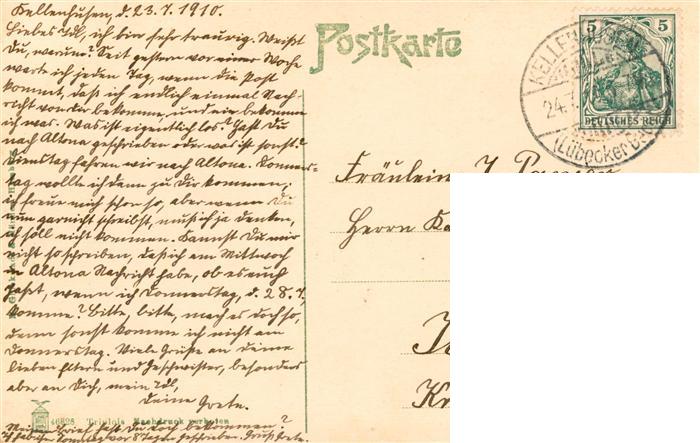 Kellenhusen, d. 23. 7. 1910.
Liebes Idl, ich bin sehr traurig. Weißt
Du, warum? Seit gestern vor einer Woche
warte ich jeden Tag, wenn die Post
kommt, daß ich endlich einmal Nach-
richt von dir bekomme, und nie bekomme
ich was. Was ist eigentlich los? Hast Du
nach Altona geschrieben oder was ist sonst?
Dienstag fahren wir nach Altona. Donners-
tag wollte ich dann zu Dir kommen;
ich freue mich schon so, aber wenn Du
nun garnicht schreibst, muß ich ja denken,
ich soll nicht kommen. Kannst Du mir
nicht so schreiben, daß ich am Mittwoch
in Altona Nachricht habe, ob es euch
paßt, wenn ich Donnerstag, d. 28. 7.
komme? Bitte, bitte, mach es doch so,
denn sonst komme ich nicht am
Donnerstag. Viele Grüße an deine
lieben Eltern und Geschwister, besonders
aber an Dich, mein Idl,
Deine Grete.
Meinen Brief hast Du doch bekommen?
Ich habe Sonntag vor 8 Tagen geschrieben. Gruß Grete.
46828 Triolois Nachdruck verboten
Postkarte
5 5
DEUTSCHES REICH
KELLENHUSEN
24.7
(Lübecker
Fräulein J.
Herrn